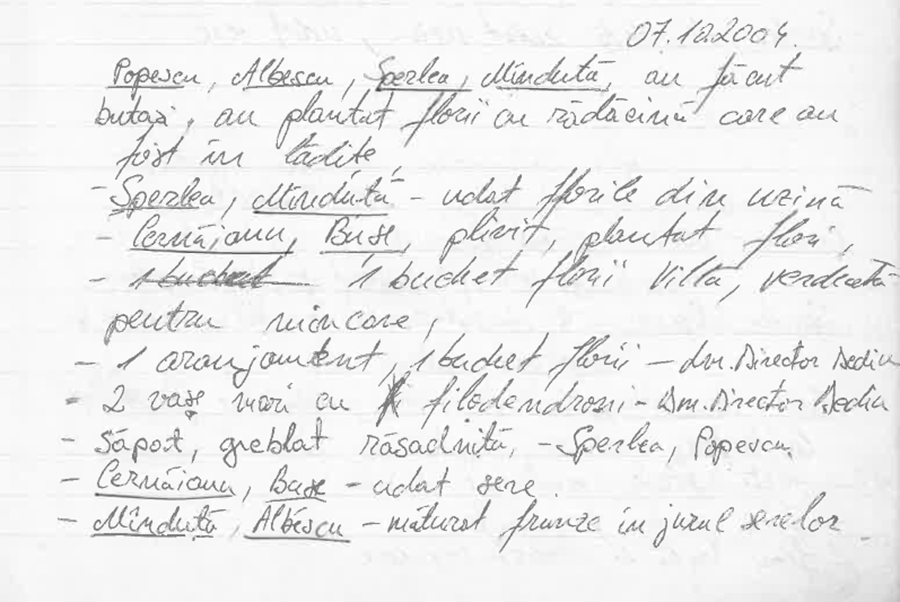 07.10.2004.
Popescu, Albescu, Sperlea, Mînduță, au făcut
butași, au plantat florii cu rădăcină care au
fost în lădițe,
- Sperlea, Mînduță - udat florile din uzină
- Cernăianu, Buse, plivit, plantat flori,
- 1 buchet 1 buchet florii Villa, verdeată
pentru mîncare,
- 1 aranjament, 1 buchet florii - Dm. Director Dediu
- 2 vase mari cu filodendroni - Dm. Director Dediu
- Săpat, greblat răsadniță, - Sperlea, Popescu.
- Cernăianu, Buse - udat sere.
- Mînduță, Albescu - măturat frunze în jurul serelor